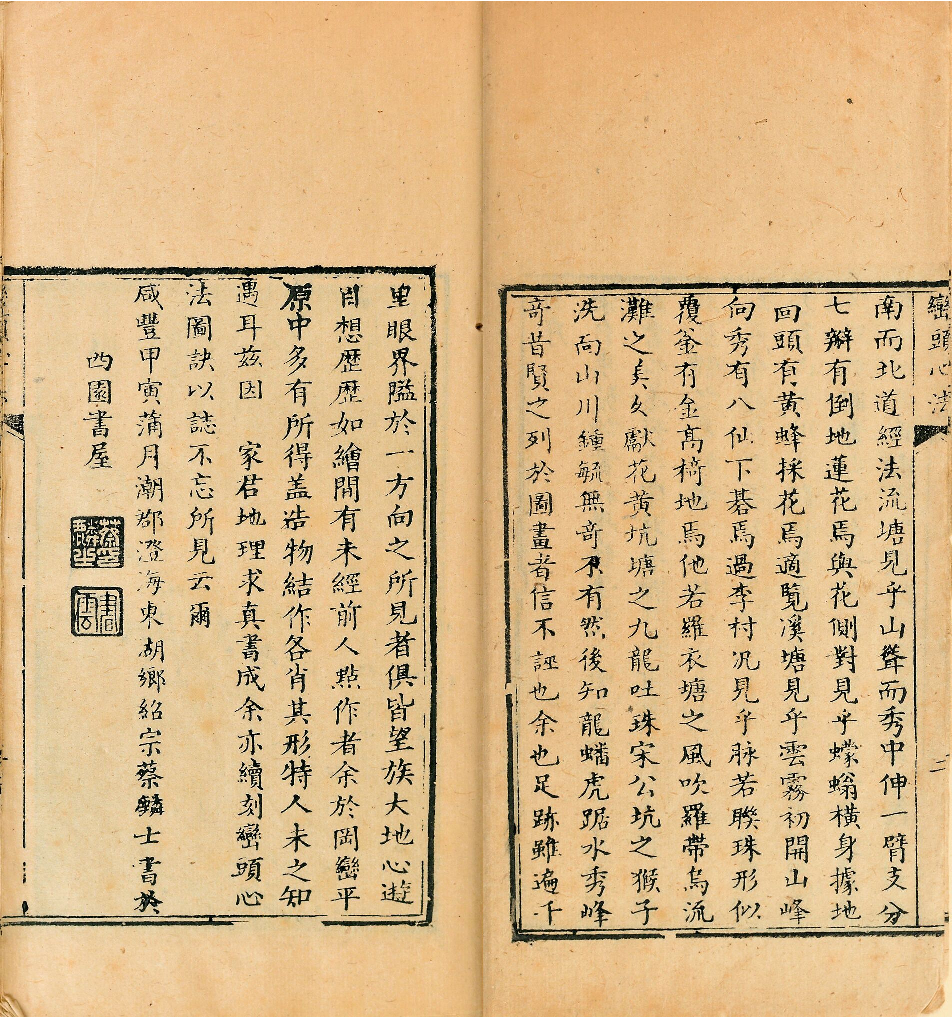 巒頭心法
二
南而北道經法流塘見乎山聳而秀中伸一臂支分
七瓣有倒地蓮花焉與花側對見乎蠓螉橫身據地
回頭有黄蜂採花焉適覧溪塘見乎雲霧初開山峰
向秀有八仙下碁焉過李村况見乎脉若聨珠形似
覆釜有金髙椅地焉他若羅衣塘之風吹羅帶烏流
灘之美女獻花黄坑塘之九龍吐珠宋公坑之猴子
洗向山川鍾毓無竒不有然後知龍蟠虎踞水秀峰
竒昔賢之列於圖畫者信不誣也余也足跡雖遍千
里眼界隘於一方向之所見者俱皆望族大地心遊
目想歴歴如繪間有未經前人㸃作者余於岡巒平
原中多有所得盖造物結作各肖其形特人未之知
遇耳兹因 家君地理求真書成余亦續刻巒頭心
法圖訣以誌不忘所見云爾
咸豐甲寅蒲月潮郡澄海東湖鄉紹宗蔡麟士書於
西園書屋
書雲